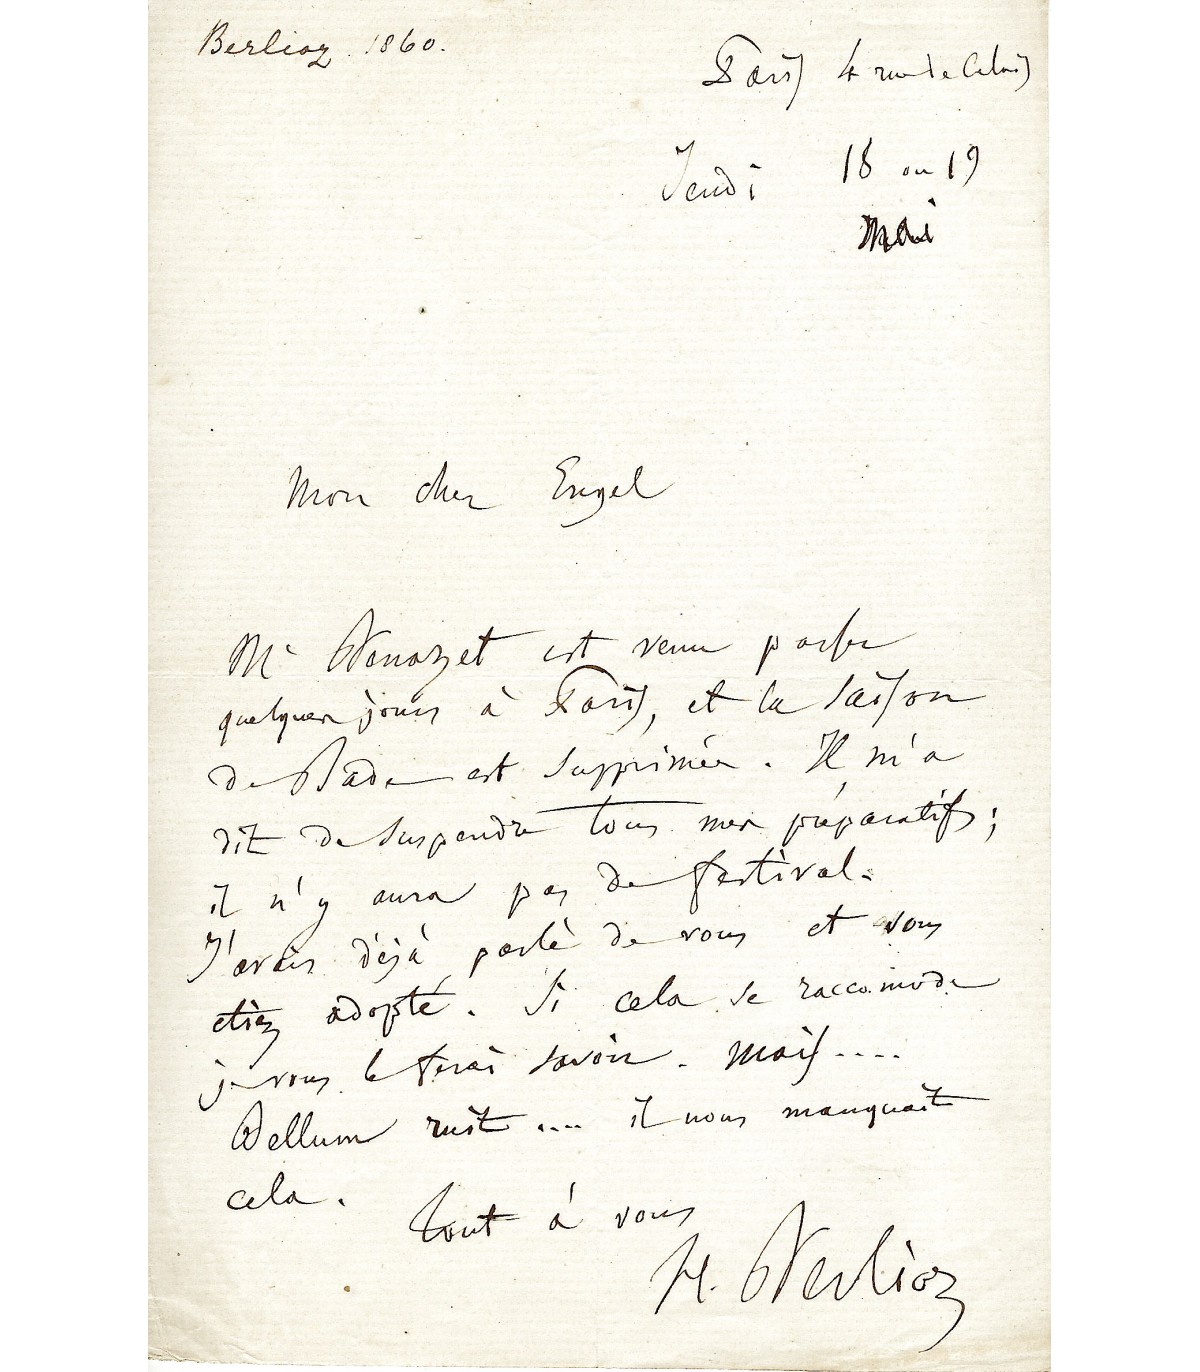 Berlioz 1860.
Paris 4 rue de Calais
Jeudi 18 ou 19
Mai
Mon cher Engel
Mr Benazet est venu passer
quelques jours à Paris, et la saison
de Bade est supprimée. Il m'a
dit de suspendre tous mes préparatifs;
il n'y aura pas de festival.
J'avais déjà parlé de vous et vous
etiez adopté. Si cela se raccomode
je vous le ferai savoir. Mais....
Bellum ruit .... il nous manquait
cela.
Tout à vous
H. Berlioz